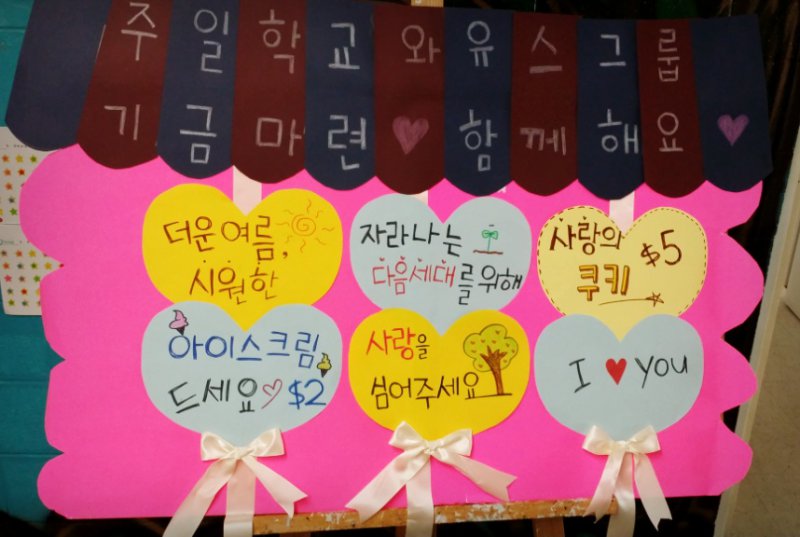 주일학교와유스그룹
기금마련♥함께해요♥
더운 여름,
시원한
아이스크림
드세요♡ $2
자라나는
다음세대를 위해
사랑을
심어주세요
사랑의
쿠키
$5
I ♥ you